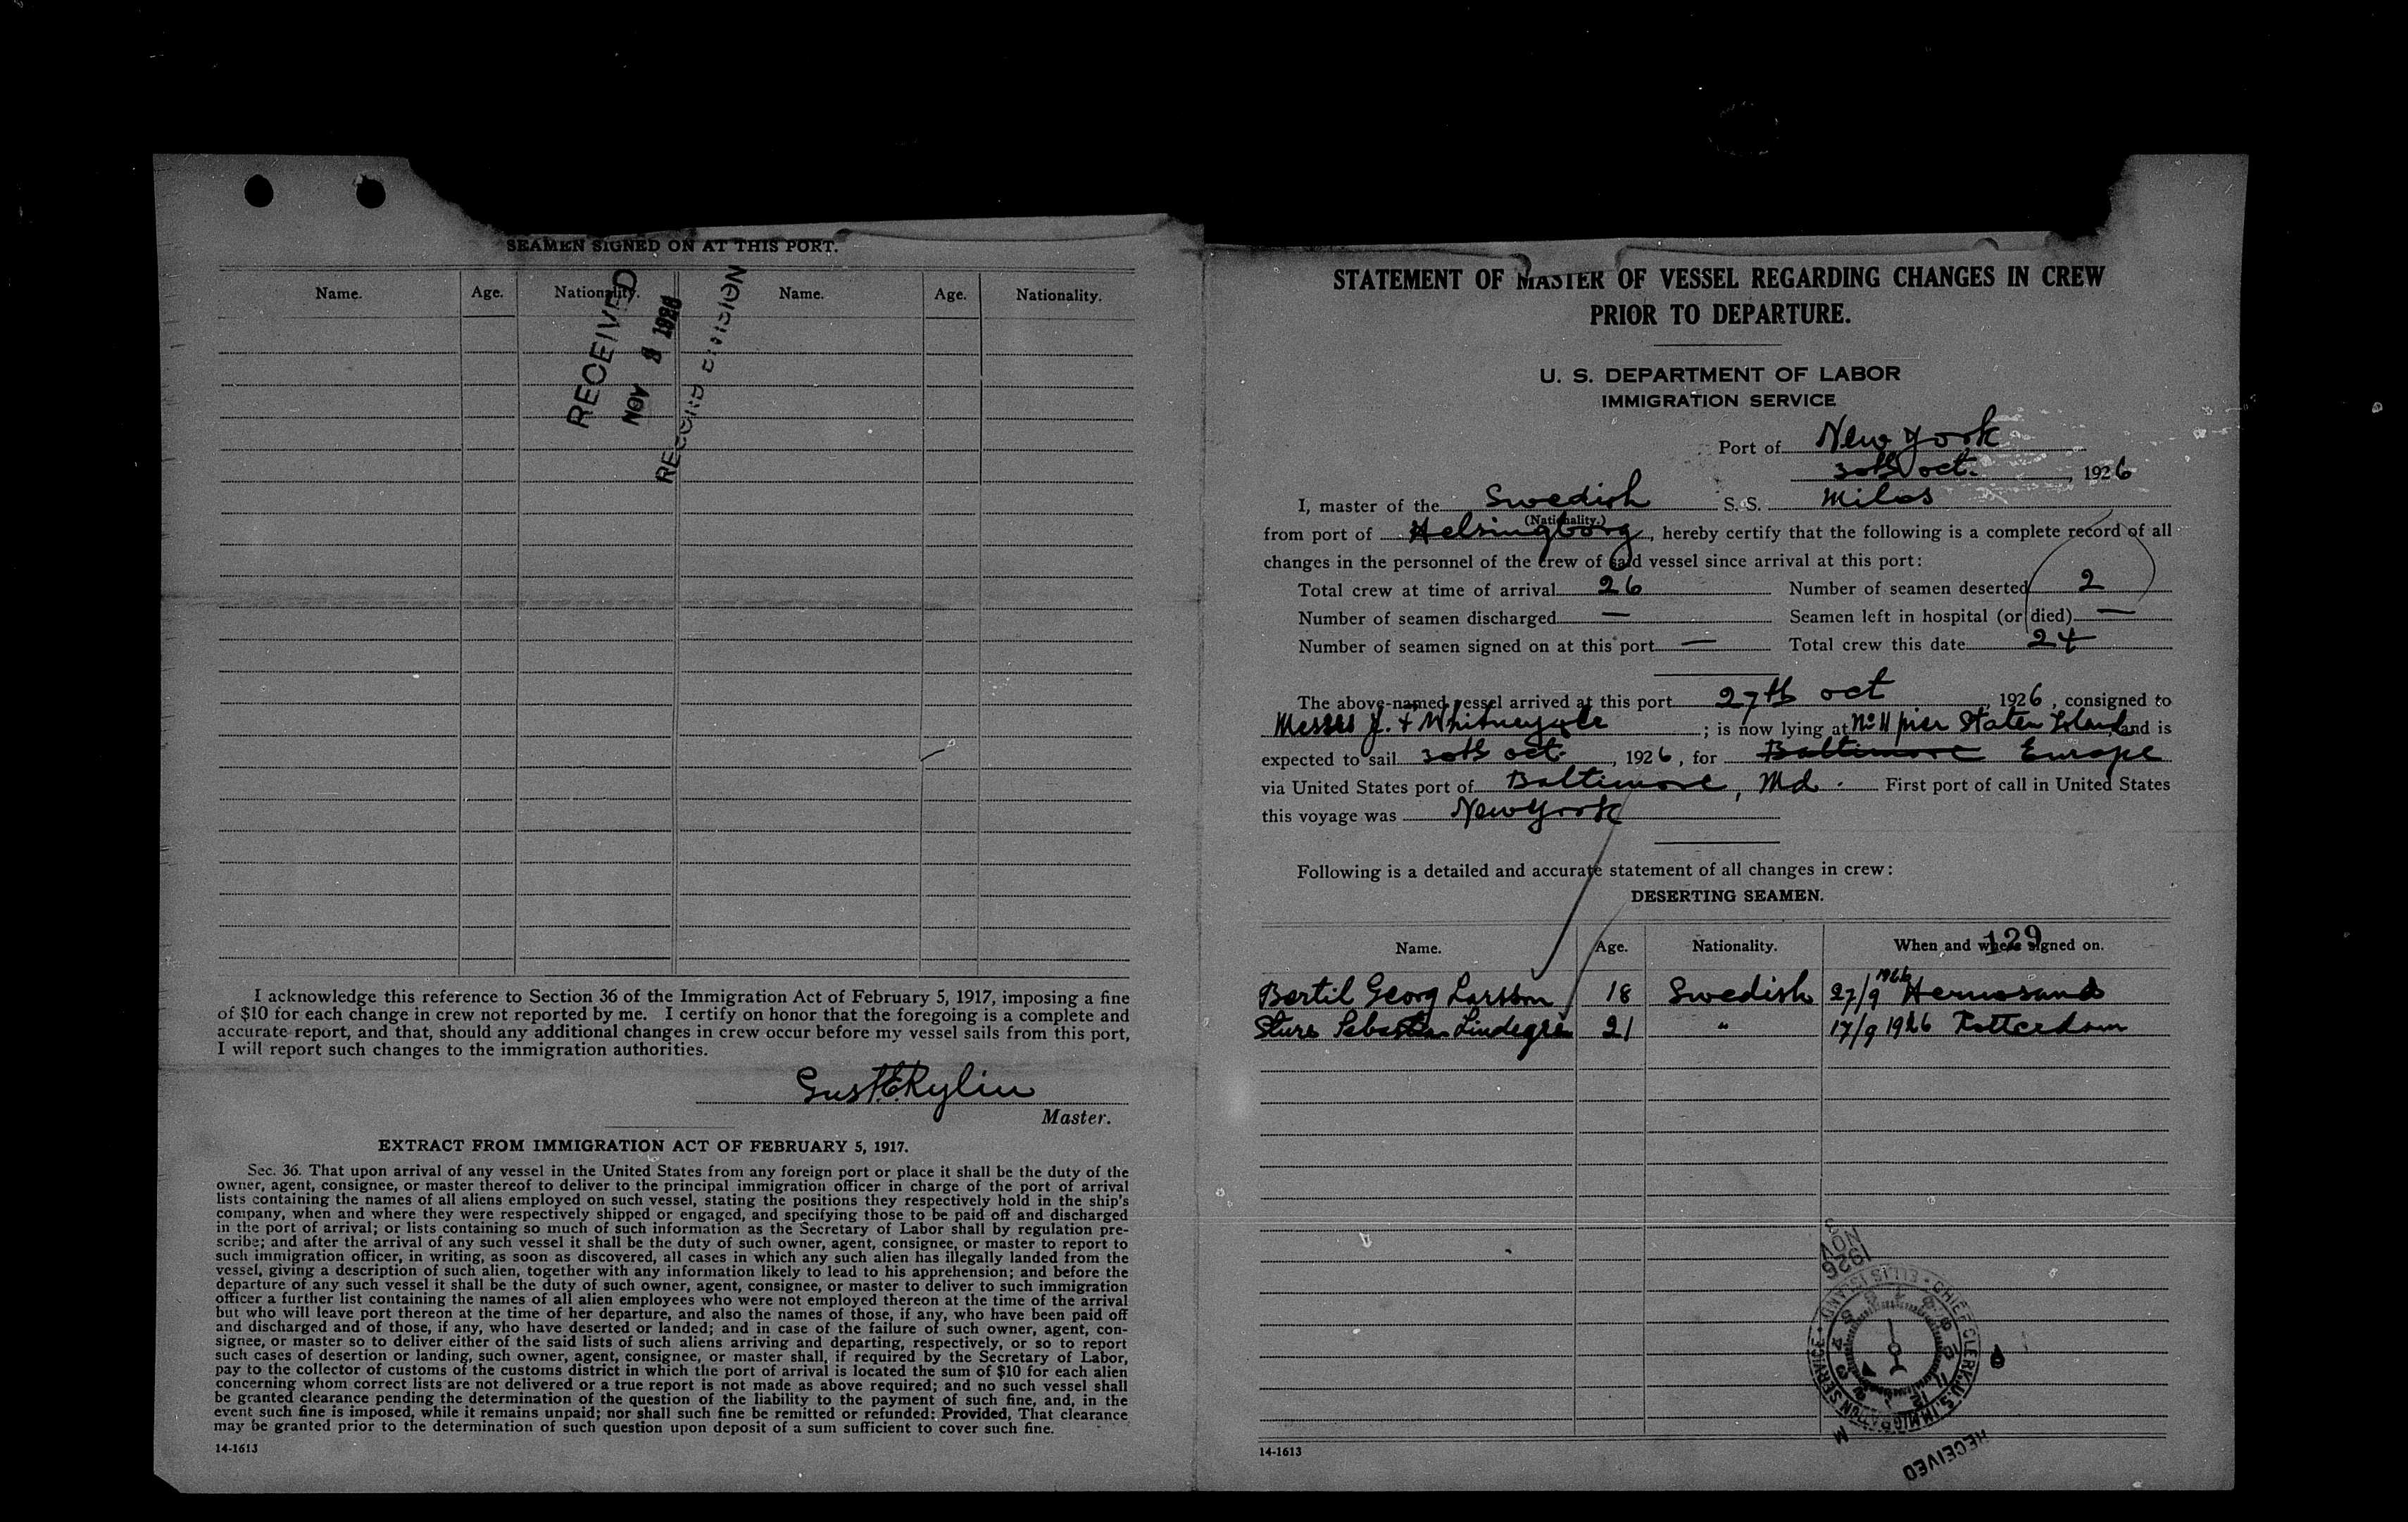 SEAMEN SIGNED ON AT THIS PORT.
Name. Age. Nationality. Name. Age. Nationality.
RECEIVED
NOV 1926
RECORD DIVISION
I acknowledge this reference to Section 36 of the Immigration Act of February 5, 1917, imposing a fine
of $10 for each change in crew not reported by me. I certify on honor that the foregoing is a complete and
accurate report, and that, should any additional changes in crew occur before my vessel sails from this port,
I will report such changes to the immigration authorities.
Gust. E. Rylin
Master.
EXTRACT FROM IMMIGRATION ACT OF FEBRUARY 5, 1917.
Sec. 36. That upon arrival of any vessel in the United States from any foreign port or place it shall be the duty of the
owner, agent, consignee, or master thereof to deliver to the principal immigration officer in charge of the port of arrival
lists containing the names of all aliens employed on such vessel, stating the positions they respectively hold in the ship's
company, when and where they were respectively shipped or engaged, and specifying those to be paid off and discharged
in the port of arrival; or lists containing so much of such information as the Secretary of Labor shall by regulation pre-
scribe; and after the arrival of any such vessel it shall be the duty of such owner, agent, consignee, or master to report to
such immigration officer, in writing, as soon as discovered, all cases in which any such alien has illegally landed from the
vessel, giving a description of such alien, together with any information likely to lead to his apprehension; and before the
departure of any such vessel it shall be the duty of such owner, agent, consignee, or master to deliver to such immigration
officer a further list containing the names of all alien employees who were not employed thereon at the time of the arrival
but who will leave port thereon at the time of her departure, and also the names of those, if any, who have been paid off
and discharged and of those, if any, who have deserted or landed; and in case of the failure of such owner, agent, con-
signee, or master so to deliver either of the said lists of such aliens arriving and departing, respectively, or so to report
such cases of desertion or landing, such owner, agent, consignee, or master shall, if required by the Secretary of Labor,
pay to the collector of customs of the customs district in which the port of arrival is located the sum of $10 for each alien
concerning whom correct lists are not delivered or a true report is not made as above required; and no such vessel shall
be granted clearance pending the determination of the question of the liability to the payment of such fine, and, in the
event such fine is imposed, while it remains unpaid; nor shall such fine be remitted or refunded: Provided, That clearance
may be granted prior to the determination of such question upon deposit of a sum sufficient to cover such fine.
14-1613
STATEMENT OF MASTER OF VESSEL REGARDING CHANGES IN CREW
PRIOR TO DEPARTURE.
U. S. DEPARTMENT OF LABOR
IMMIGRATION SERVICE
Port of New York
30th oct. , 1926
I, master of the Swedish S. S. Milos
(Nationality.)
from port of Helsingborg, hereby certify that the following is a complete record of all
changes in the personnel of the crew of said vessel since arrival at this port:
Total crew at time of arrival 26 Number of seamen deserted 2
Number of seamen discharged — Seamen left in hospital (or died) —
Number of seamen signed on at this port — Total crew this date 24
The above-named vessel arrived at this port 27th oct , 1926, consigned to
Messrs J. ; is now lying at No 11 pier Staten Island and is
expected to sail 30th oct. , 1926, for Baltimore Europe
via United States port of Baltimore, Md. First port of call in United States
this voyage was New York
Following is a detailed and accurate statement of all changes in crew:
DESERTING SEAMEN.
Name. Age. Nationality. When and where signed on.
129
Bertil Georg Larsson 18 Swedish 27/9 1926 Hernosand
Sture Sebastian Lindegren 21 " 17/9 1926 Rotterdam
NOV 1926
CHIEF CLERK, U. S. IMMIGRATION SERVICE • ELLIS ISLAND •
M
RECEIVED
14-1613